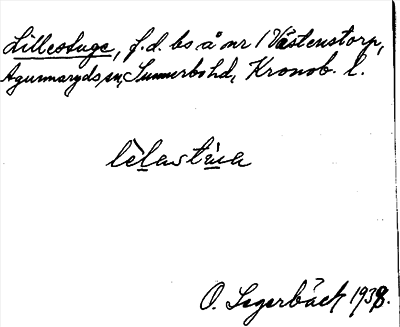 Lillestuge, f.d. bs å nr 1 Västenstorp,
Agunnaryds sn, Sunnerbo hd, Kronob. l.
lèlastùa
O. Segerbäck 1938.